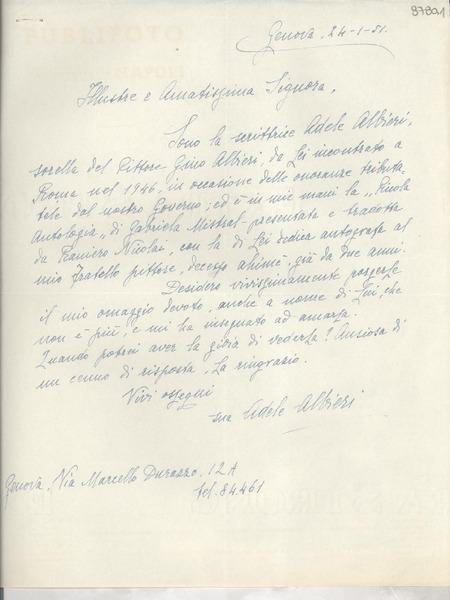 87801
Genova, 24-1-51.
Illustre e Amatissima Signora,
Sono la scrittrice Adele Albieri,
sorella del Pittore Gino Albieri, da Lei incontrato a
Roma nel 1946, in occasione delle onoranze tributa-
tele dal nostro Governo; ed è in mie mani la "Piccola
Antologia" di Gabriela Mistral - presentata e tradotta
da Raniero Nicolai, con la di Lei dedica autografa al
mio Fratello pittore, decesso ahimè, già da due anni.
Desidero vivissimamente porgerLe
il mio omaggio devoto, anche a nome di Lui, che
non è più, e mi ha insegnato ad amarLa.
Quando potrei aver la gioia di vederLa? Ansiosa di
un cenno di risposta, La ringrazio.
Vivi ossequi
sua Adele Albieri
Genova, Via Marcello Durazzo, 12A
tel. 84461